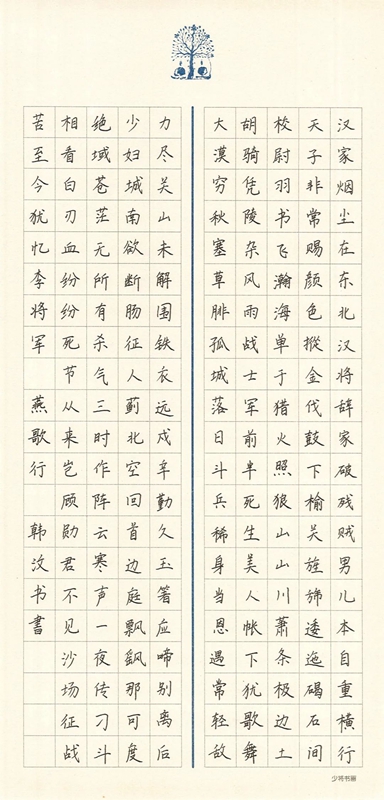 汉家烟尘在东北汉将辞家破残贼男儿本自重横行
天子非常赐颜色摐金伐鼓下榆关旌旆逶迤碣石间
校尉羽书飞瀚海单于猎火照狼山山川萧条极边土
胡骑凭陵杂风雨战士军前半死生美人帐下犹歌舞
大漠穷秋塞草腓孤城落日斗兵稀身当恩遇常轻敌
力尽关山未解围铁衣远戍辛勤久玉箸应啼别离后
少妇城南欲断肠征人蓟北空回首边庭飘飖那可度
绝域苍茫无所有杀气三时作阵云寒声一夜传刁斗
相看白刃血纷纷死节从来岂顾勋君不见沙场征战
苦至今犹忆李将军 燕歌行 韩汶书書
少将书画